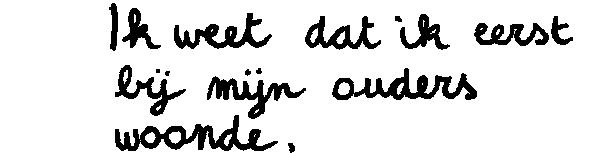 Ik weet dat ik eerst
bij mijn ouders
woonde.